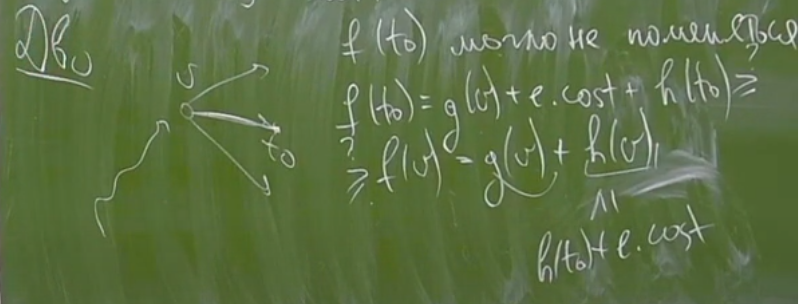 Дво
f(to) могло не поменяться
v
f(to) = g(v) + e.cost + h(to) ≥
to
?
≥ f(v) = g(v) + h(v)
/\|
h(to) + e.cost